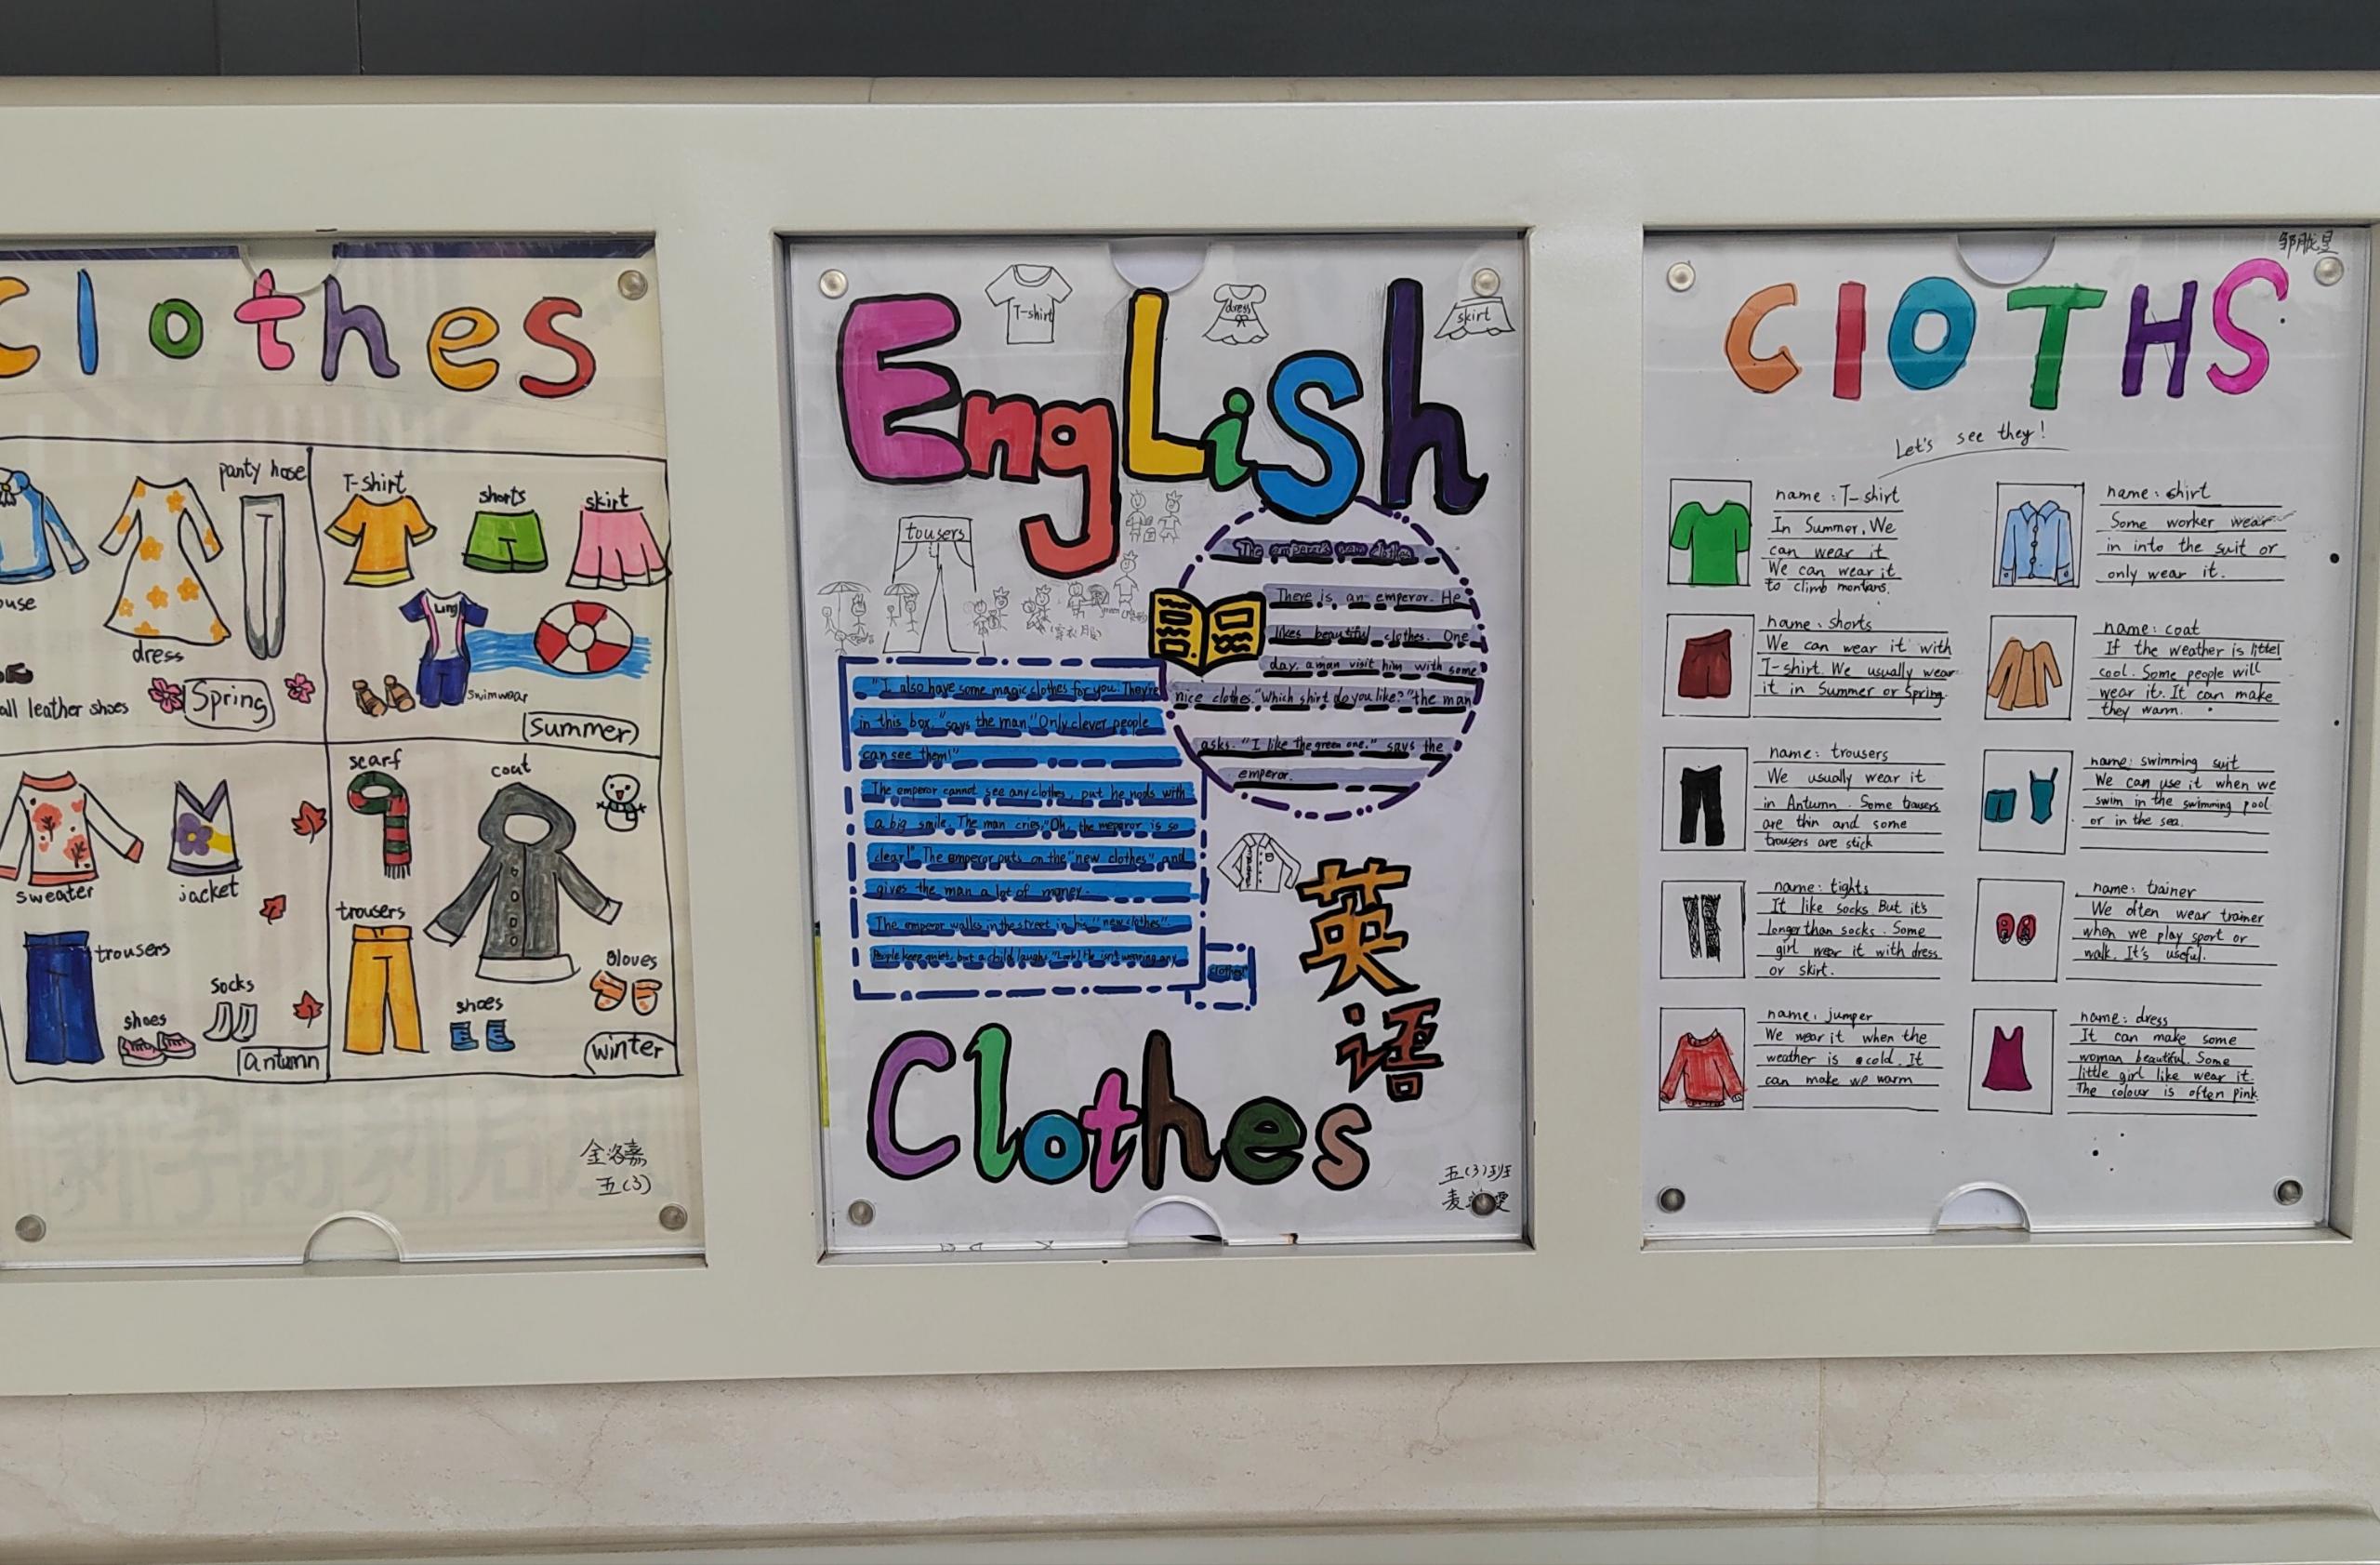 clothes
panty hose
dress
all leather shoes
Spring
T-shirt
shorts
skirt
swimwear
Summer
sweater
jacket
trousers
shoes
socks
antumn
scarf
coat
trousers
shoes
Gloves
winter
金洛嘉
五(3)
English
T-shirt
dress
skirt
tousers
The emperor's new clothes
There is an emperor. He
likes beautiful clothes. One
day, a man visit him with some
nice clothes. "Which shirt do you like?" the man
asks. "I like the green one." says the
emperor.
"I also have some magic clothes for you. They're
in this box." says the man. "Only clever people
can see them!"
The emperor cannot see any clothes, put he nods with
a big smile. The man cries, "Oh, the meperor is so
clear!" The emperor puts on the "new clothes" and
gives the man a lot of money.
The emperor walks in the street in his "new clothes".
People keep quiet, but a child laughs, "Look! He isn't wearing any
clothes!"
英
语
Clothes
五(3)班
麦
ClOTHS
Let's see they!
name: T-shirt
In Summer. We
can wear it
We can wear it
to climb montans.
name: shorts
We can wear it with
T-shirt. We usually wear
it in Summer or Spring.
name: trousers
We usually wear it
in Antumn. Some trousers
are thin and some
trousers are stick
name: tights
It like socks But it's
longer than socks. Some
girl wear it with dress
or skirt.
name: jumper
We wear it when the
weather is cold. It
can make we warm
name: shirt
Some worker wear
in into the suit or
only wear it.
name: coat
If the weather is littel
cool. Some people will
wear it. It can make
they warm.
name: swimming suit
We can use it when we
swim in the swimming pool
or in the sea.
name: trainer
We often wear trainer
when we play sport or
walk. It's useful.
name: dress
It can make some
woman beautiful. Some
little girl like wear it.
The colour is often pink.